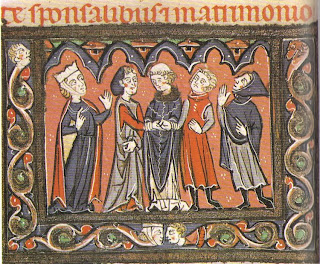 e sponsalibus ⁊ matrimonio